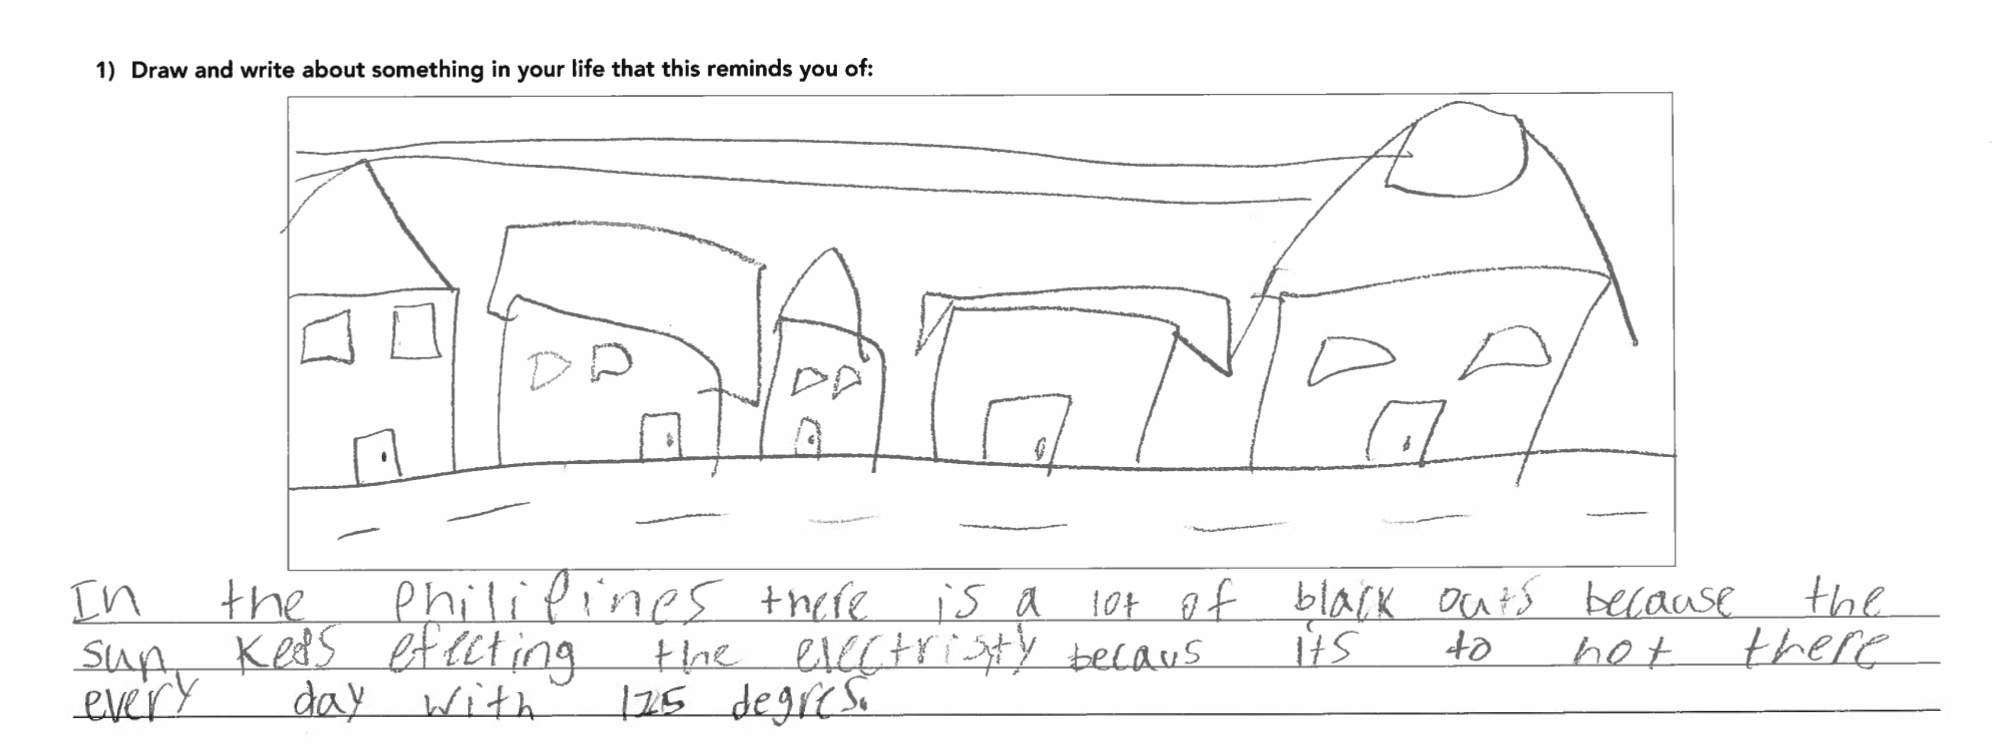 1) Draw and write about something in your life that this reminds you of:
In the Philipines there is a lot of black outs because the
sun keeps efecting the electristy becaus its to hot there
every day with 125 degres.